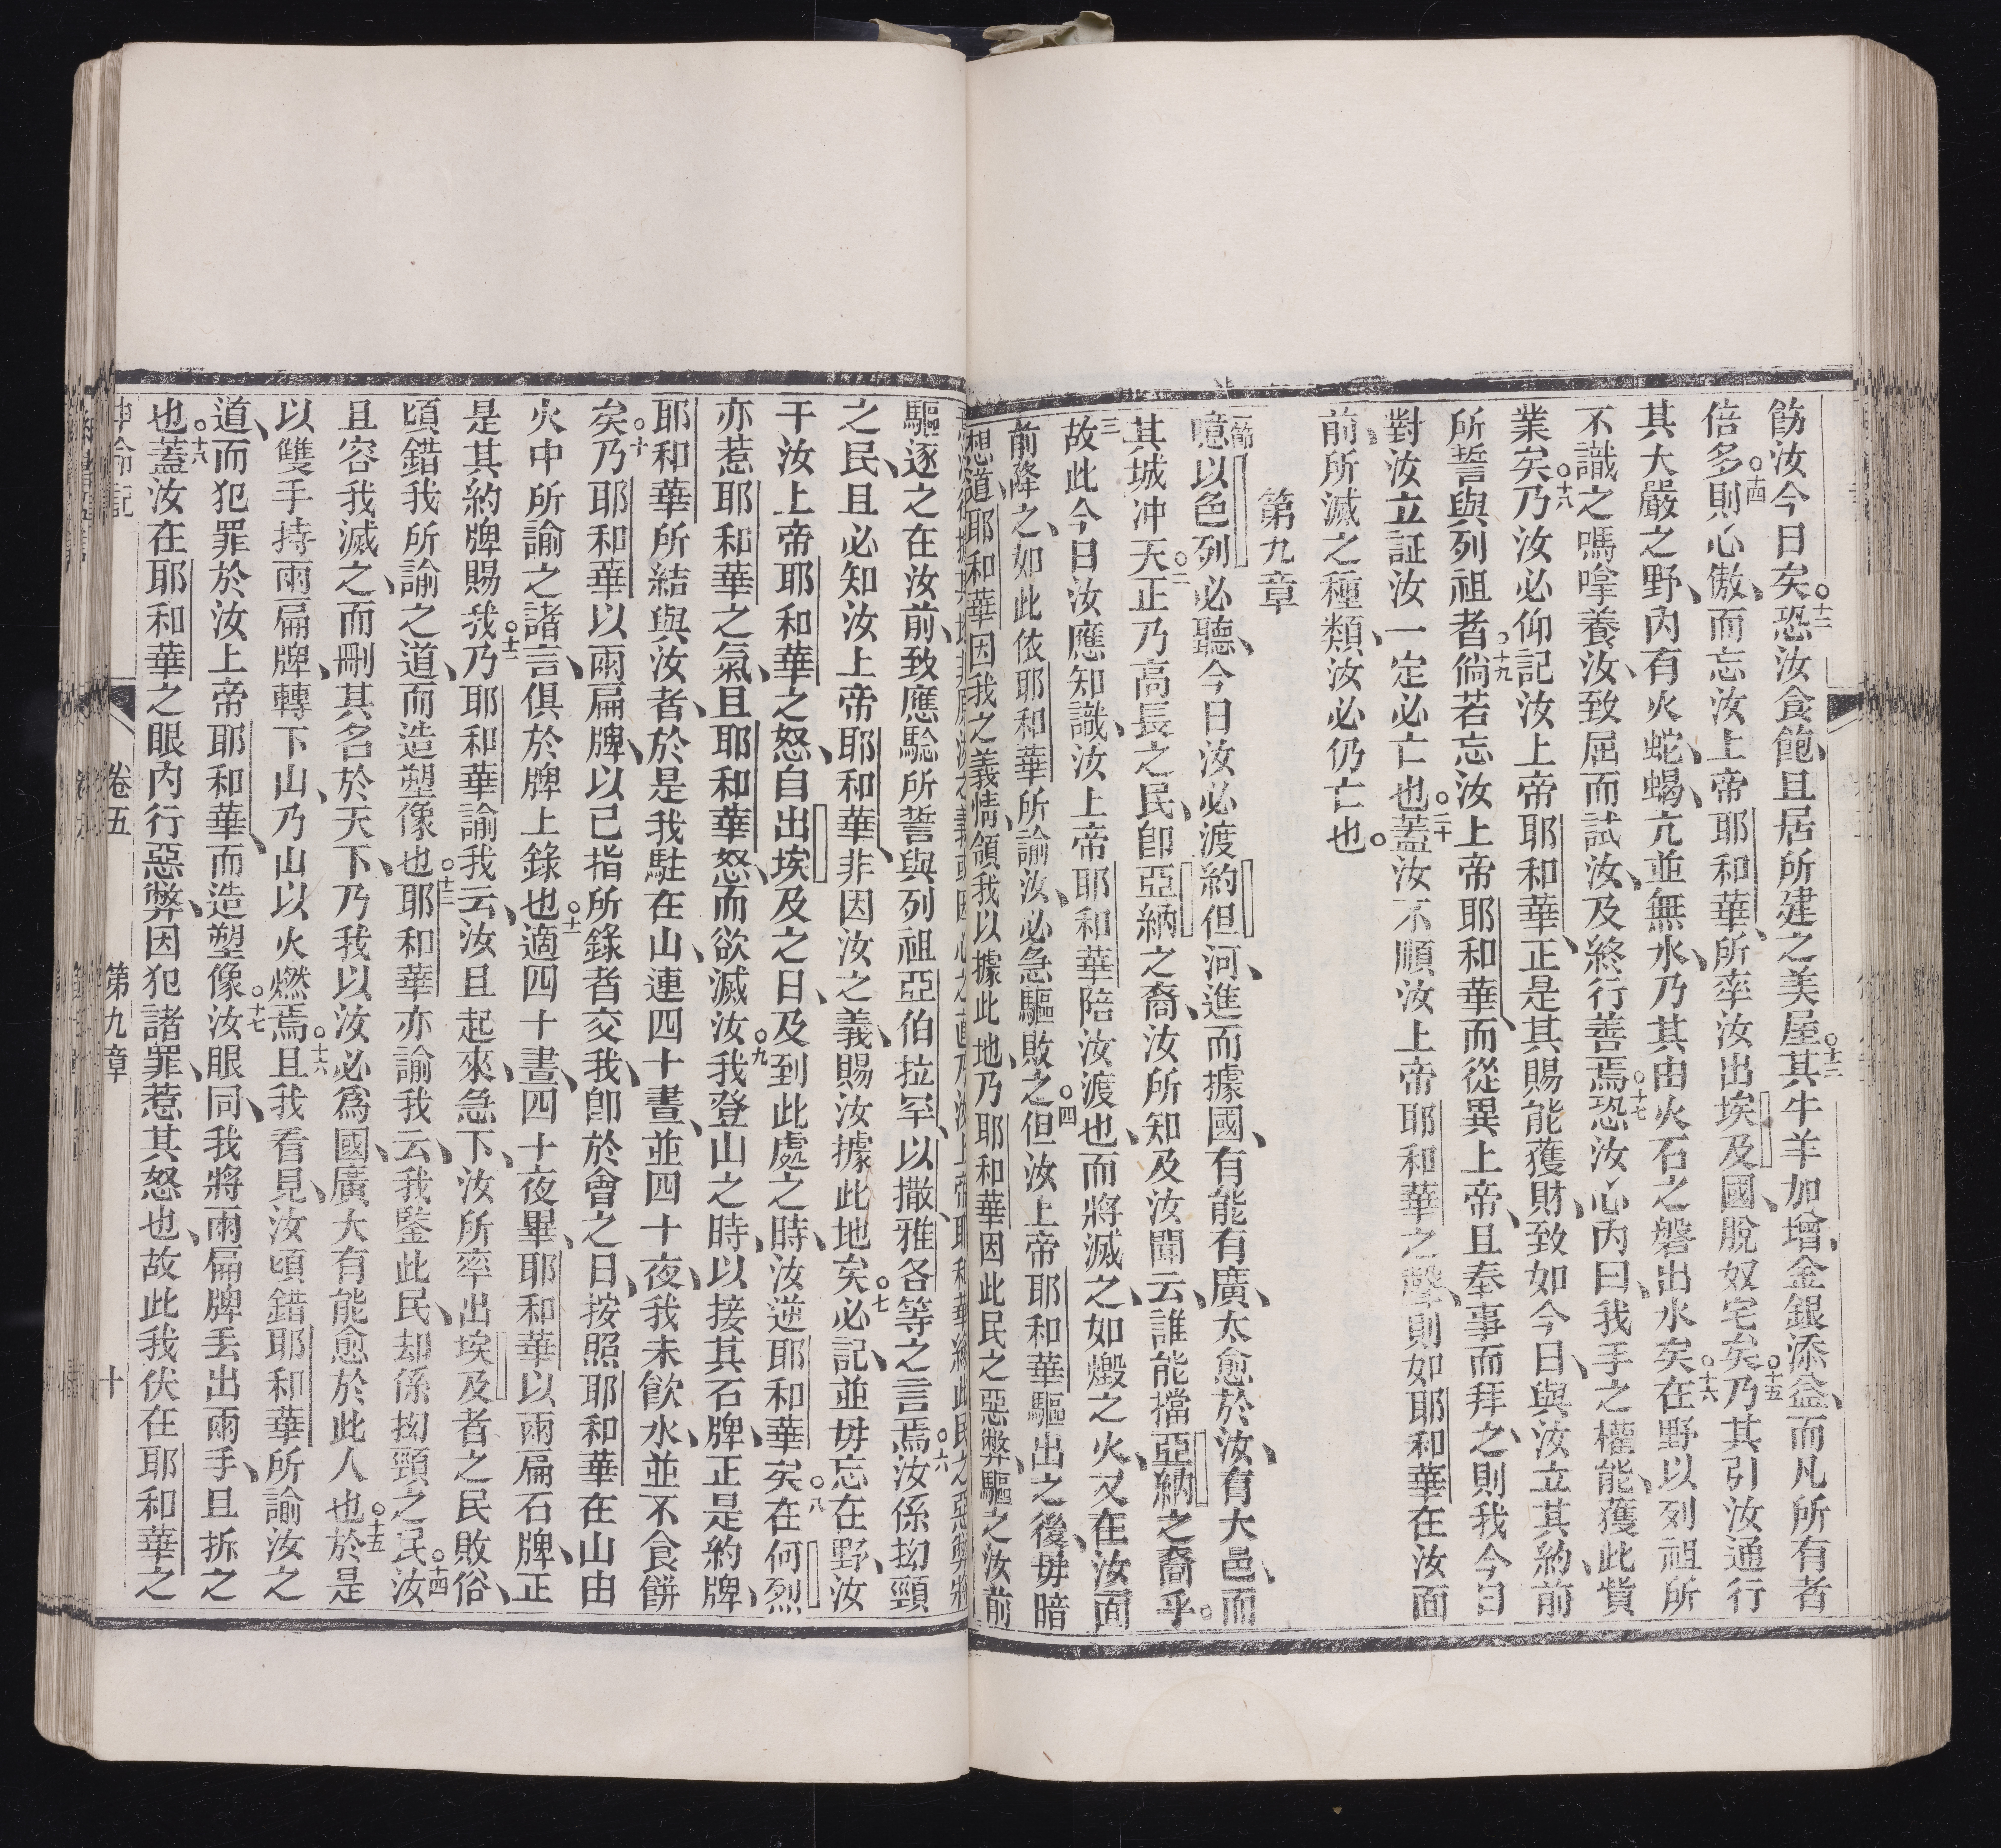 飭汝今日矣○十二恐汝食飽、且居所建之美屋○十三其牛羊加增、金銀添益、而凡所有者
倍多○十四則心傲、而忘汝上帝耶和華、所率汝出埃及國、脫奴宅矣○十五乃其引汝通行
其大嚴之野、內有火蛇、蝎、亢並無水、乃其由火石之磐出水矣○十六在野以列祖所
不識之嗎嗱養汝、致屈而試汝、及終行善焉○十七恐汝心內曰、我手之權能、獲此貲
業矣○十八乃汝必仰記汝上帝耶和華、正是其賜能獲財、致如今日、與汝立其約、前
所誓與列祖者○十九倘若忘汝上帝耶和華、而從異上帝、且奉事而拜之、則我今日
對汝立証汝一定必亡也○二十蓋汝不順汝上帝耶和華之聲、則如耶和華在汝面
前、所滅之種類、汝必仍亡也○
第九章
一節噫以色列必聽、今日汝必渡約但河、進而據國、有能有廣、太愈於汝、有大邑、而
其城冲天○二正乃高長之民、卽亞納之裔、汝所知及汝聞云、誰能擋亞納之裔乎○
三故此今日汝應知識、汝上帝耶和華陪汝渡也、而將滅之、如燬之火、又在汝面
前降之、如此依耶和華所諭汝、必急驅敗之○四但汝上帝耶和華驅出之後、毋暗
想道、耶和華因我之義情、領我以據此地、乃耶和華因此民之惡弊、驅之汝前
驅逐之在汝前、致應驗所誓與列祖亞伯拉罕、以撒、雅各等之言焉○六汝係拗頸
之民、且必知汝上帝耶和華、非因汝之義、賜汝據此地矣○七必記、並毋忘在野、汝
干汝上帝耶和華之怒、自出埃及之日、及到此處之時、汝逆耶和華矣○八在何烈
亦惹耶和華之氣、且耶和華怒、而欲滅汝○九我登山之時、以接其石牌、正是約牌、
耶和華所結與汝者、於是我駐在山、連四十晝、並四十夜、我未飲水、並不食餅
矣○十乃耶和華以兩扁牌、以己指所錄者交我、卽於會之日、按照耶和華在山由
火中所諭之諸言、俱於牌上錄也○十一適四十晝、四十夜畢、耶和華以兩扁石牌、正
是其約牌賜我○十二乃耶和華諭我云、汝且起來、急下、汝所率出埃及者之民敗俗、
頃錯我所諭之道、而造塑像也○十三耶和華亦諭我云、我鑒此民、却係拗頸之民○十四汝
且容我滅之、而刪其名於天下、乃我以汝必爲國、廣大有能愈於此人也○十五於是
以雙手持兩扁牌、轉下山、乃山以火燃焉○十六且我看見、汝頃錯耶和華所諭汝之
道、而犯罪於汝上帝耶和華、而造塑像○十七汝眼同、我將兩扁牌丟出兩手、且拆之
也○十八蓋汝在耶和華之眼內行惡弊、因犯諸罪、惹其怒也、故此我伏在耶和華之
神命記
卷五
第九章
十